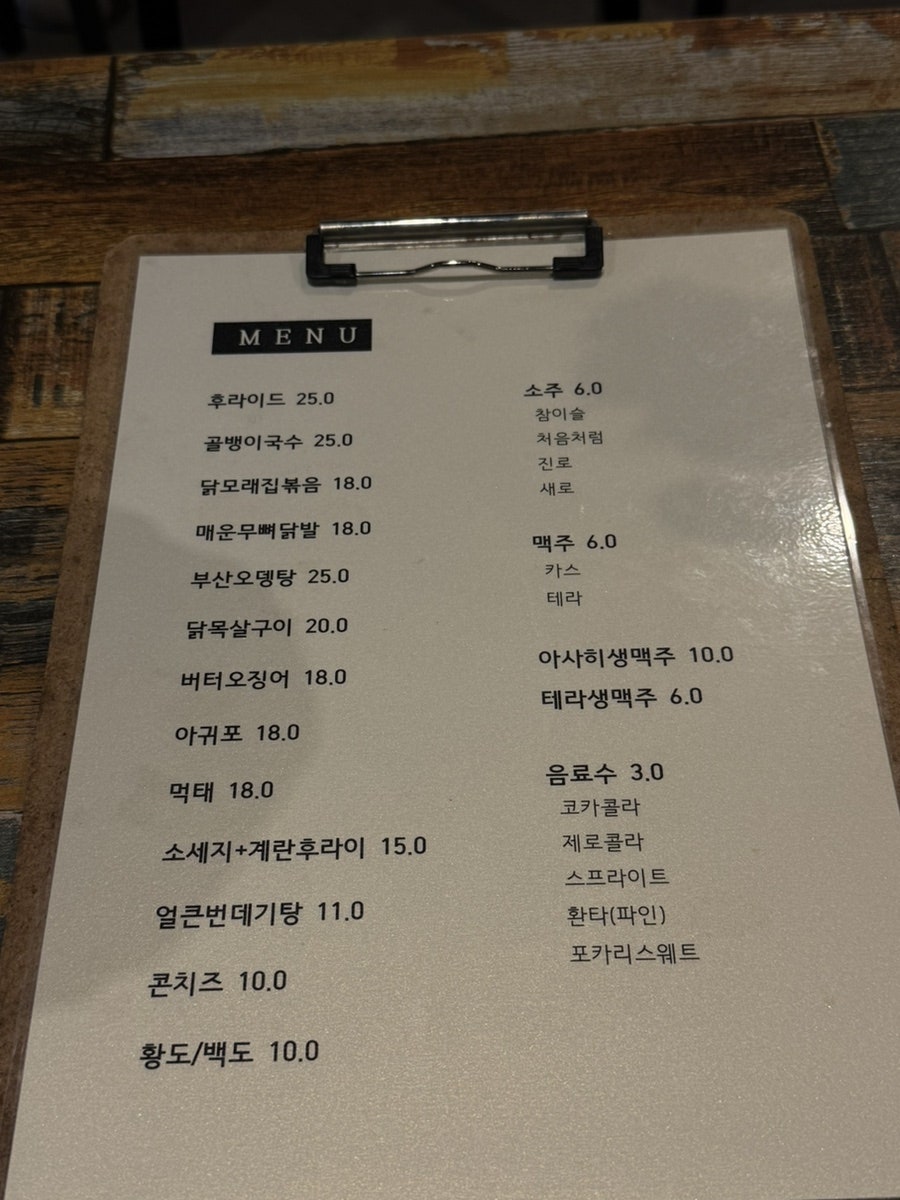 MENU
후라이드 25.0
골뱅이국수 25.0
닭모래집볶음 18.0
매운무뼈닭발 18.0
부산오뎅탕 25.0
닭목살구이 20.0
버터오징어 18.0
아귀포 18.0
먹태 18.0
소세지+계란후라이 15.0
얼큰번데기탕 11.0
콘치즈 10.0
황도/백도 10.0
소주 6.0
참이슬
처음처럼
진로
새로
맥주 6.0
카스
테라
아사히생맥주 10.0
테라생맥주 6.0
음료수 3.0
코카콜라
제로콜라
스프라이트
환타(파인)
포카리스웨트